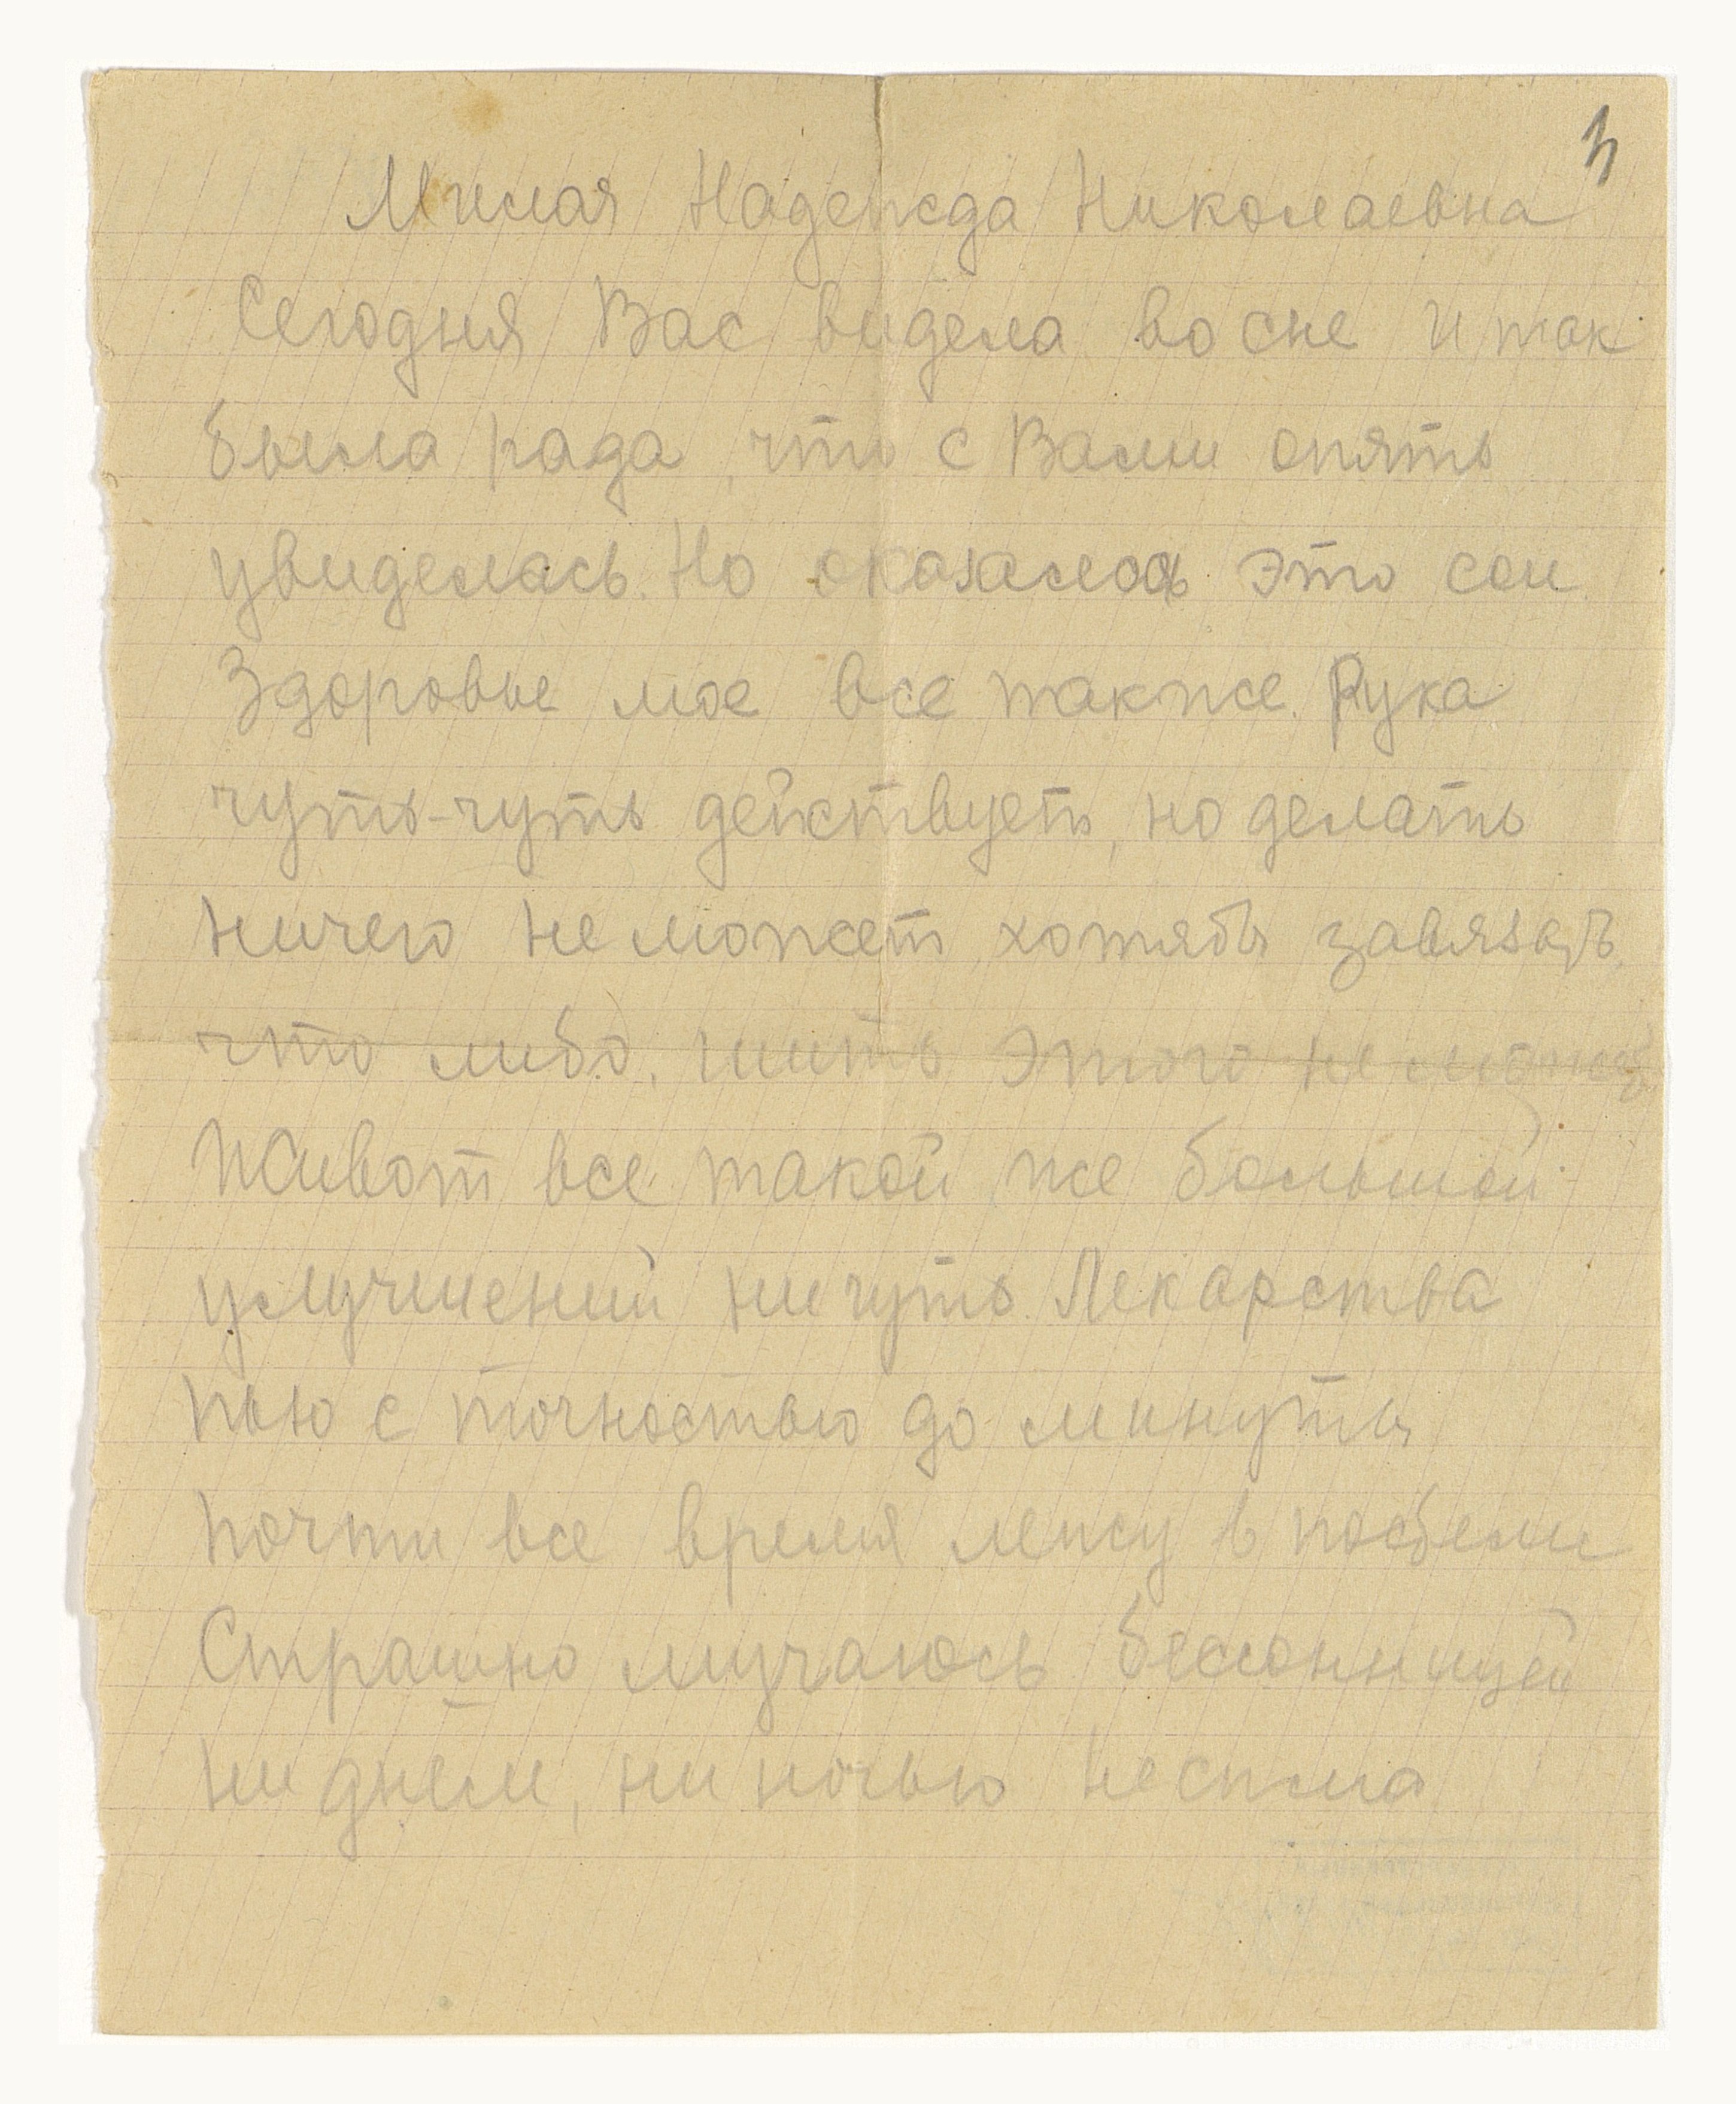 3
Милая Надежда Николаевна
Сегодня Вас видела во сне и так
была рада, что с Вами опять
увиделась. Но оказалось это сон.
Здоровье мое все также. Рука
чуть-чуть действует, но делать
ничего не может хотябы завязать
что либо, шить этого не может
Живот все такой же большой
улучшений ничуть. Лекарства
пью с точностью до минуты
почти все время лежу в постели
Страшно мучаюсь бессонницей
ни днем, ни ночью не спала